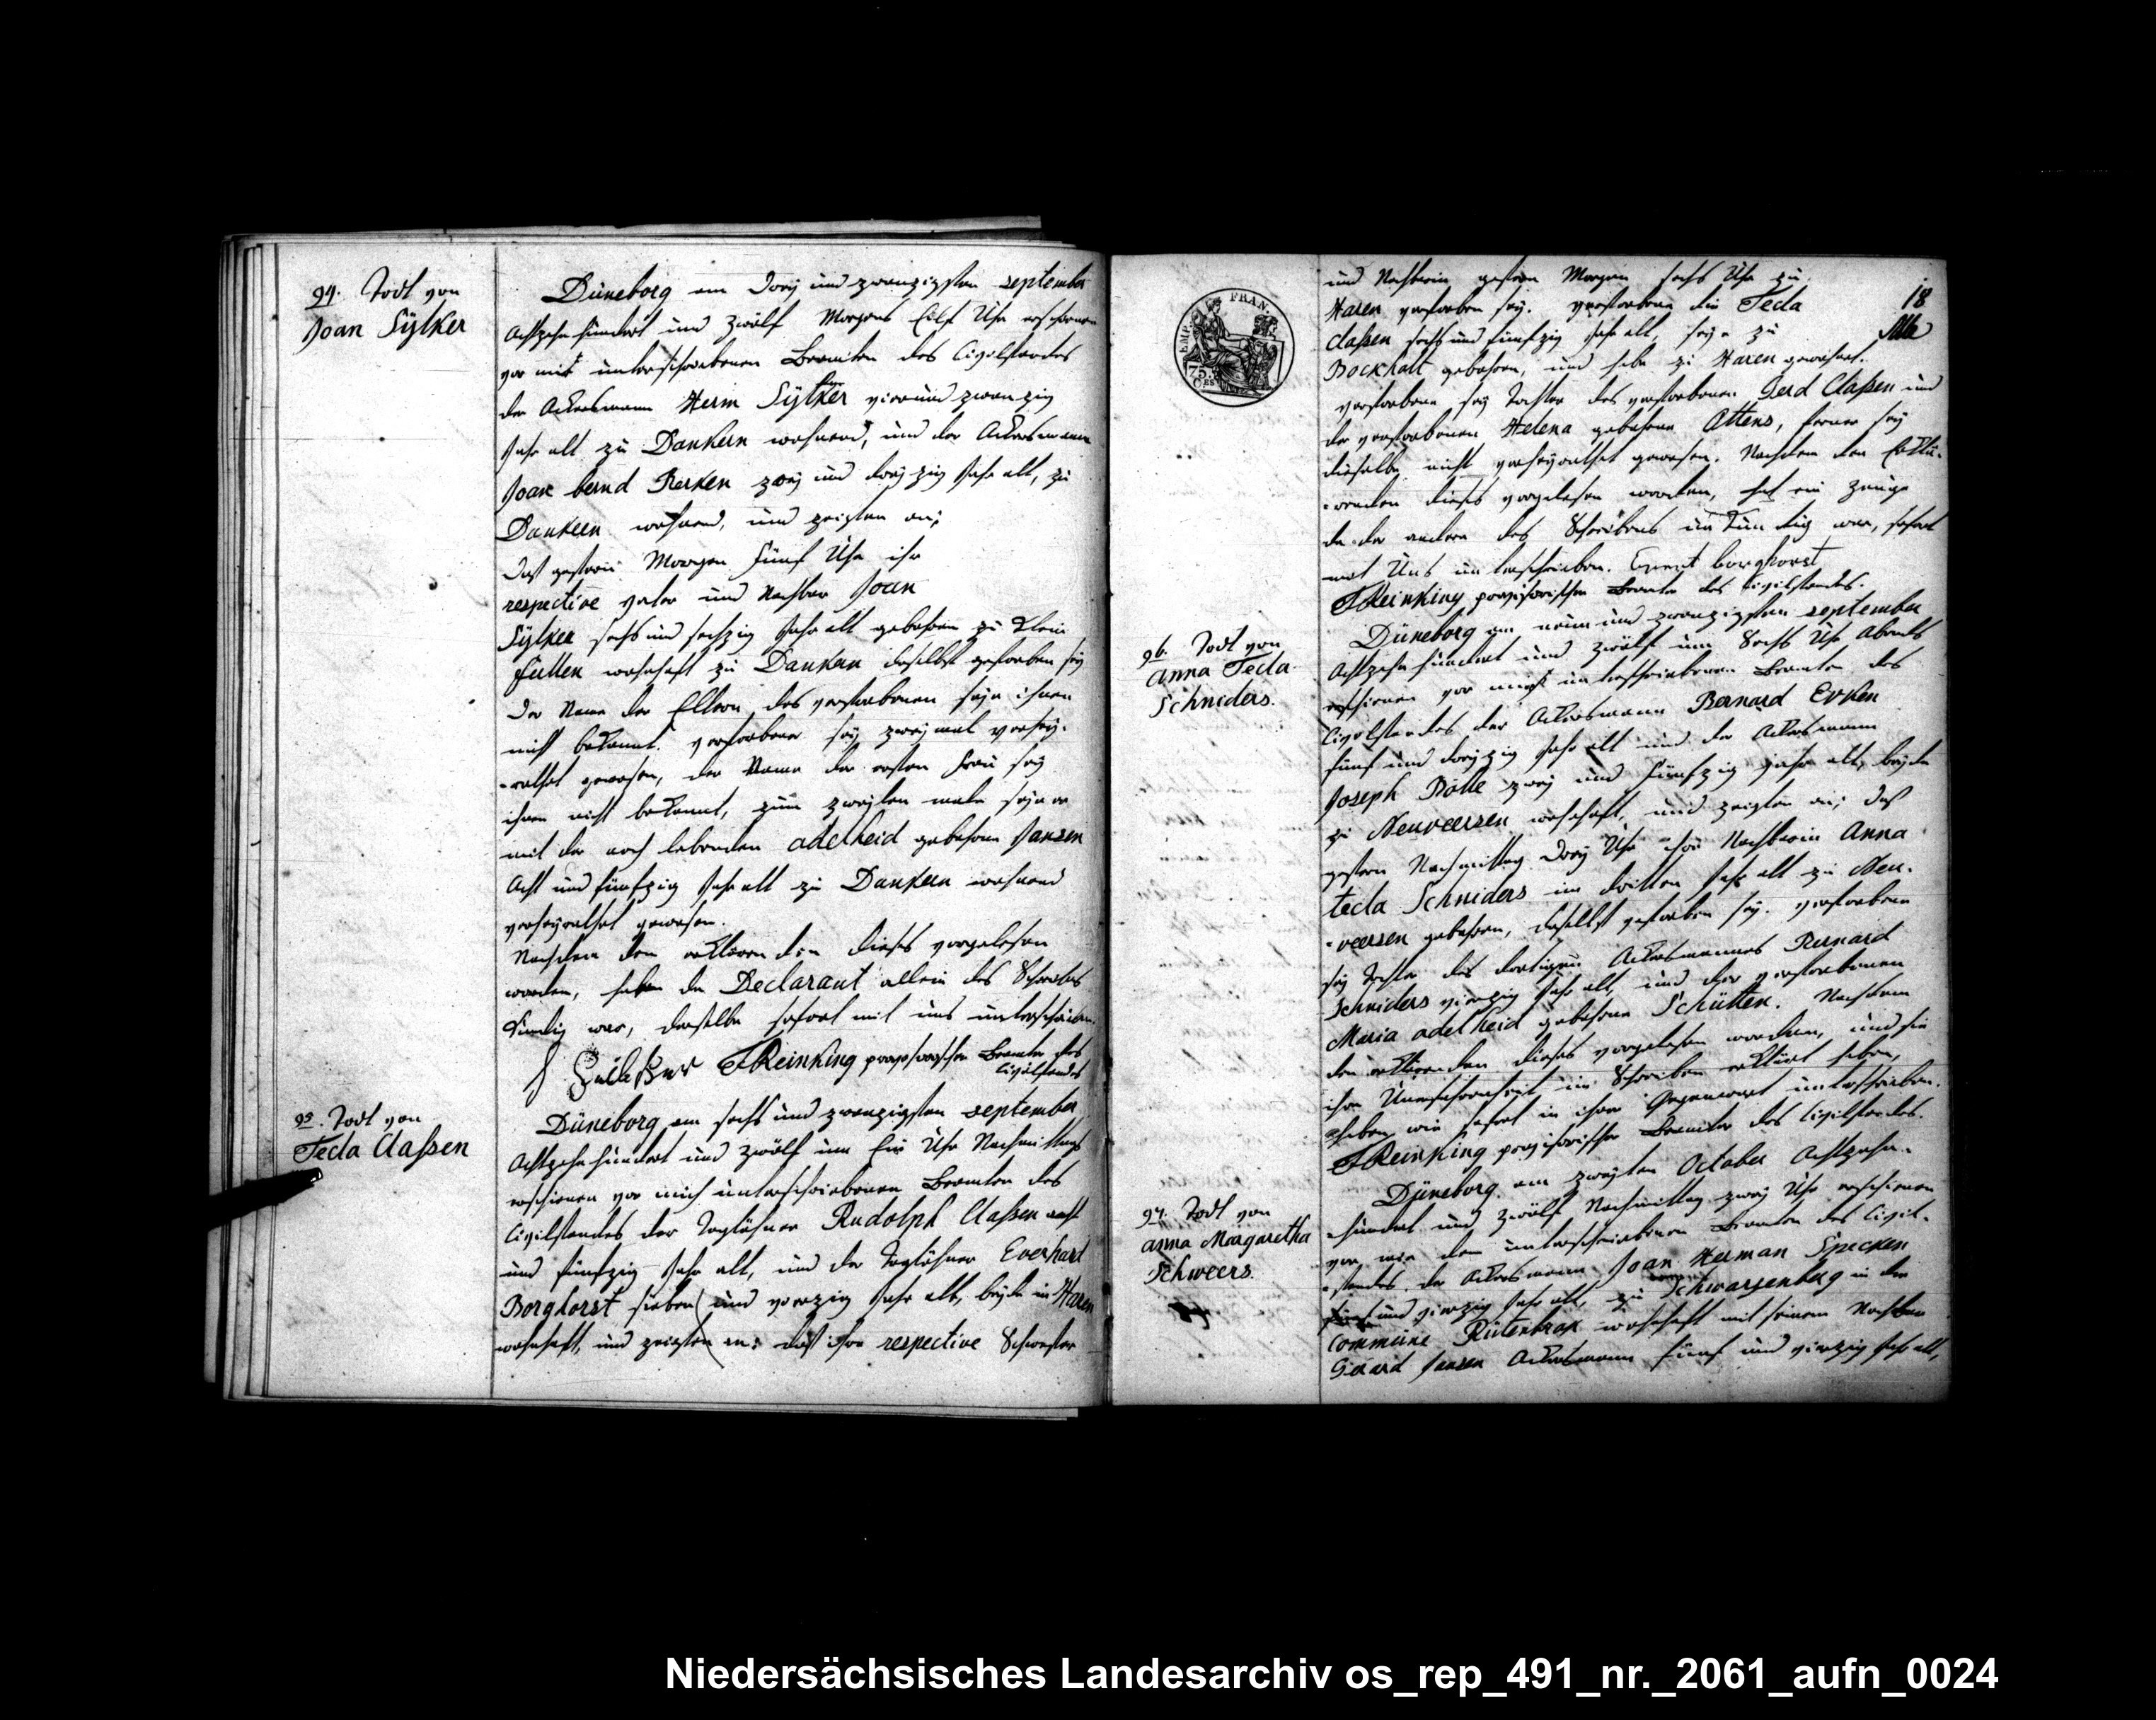 94. Todt von
Joan Sylker
Düneborg am drey und zwanzigsten september
Achtzehn hundert und zwölf Morgens Eilf Uhr erschienen
vor mir unterschriebenen Beamten des Civilstandes
der Ackersmann Herm Sylker vier und zwanzig
Jahr alt zu Dankern wohnend, und der Ackersmann
Joan bernd Rerken zwey und dreyzig Jahr alt, zu
Dankern wohnend, und zeigten an;
daß gestern Morgen fünf Uhr ihr
respective Vater und Nachbar Joan
Sylker sechs und sechzig Jahr alt gebohren zu Klein
fullen wohnhaft zu Dankern daselbst gestorben sey
Der Name der Eltern des verstorbenen seyn ihnen
nicht bekannt. verstorbener sey zweymal verhey-
-rathet gewesen, der Name der ersten Frau sey
ihnen nicht bekannt, zum zweyten male seye er
mit der noch lebenden adelheid gebohrne Jansen
Acht und fünfzig Jahr alt zu Dankern wohnend
verheyrathet gewesen.
Nachdem den erklärenden dieses vorgelesen
worden, haben der Declarant allein des Schreibens
kundig war, derselbe sofort mit uns unterschrieben.
FReinking provisorischer Beamter des
Civilstandes
95. Todt von
Tecla Claßen
Düneborg am sechs und zwanzigsten september
Achtzehn hundert und zwölf um Ein Uhr Nachmittags
erschienen vor mich unterschriebenen Beamten des
Civilstandes der Taglöhner Rudolph Claßen acht
und fünfzig Jahr alt, und der Taglöhner Everhard
Borghorst sieben und vierzig Jahr alt, beyde in Haren
wohnhaft, und zeigten an: daß ihre respective Schwester
EMP. FRAN.
75.
CES
18
und Nachbarin gestern Morgen sechs Uhr zu
Haren verstorben sey. verstorbene die Tecla
claßen sechs und fünfzig Jahr alt, seye zu
Bockholt gebohren, und habe zu Haren gewohnt.
verstorbene sey Tochter des verstorbenen Gerd Claßen und
der verstorbenen Helena gebohrne Ottens, ferner sey
dieselbe nicht verheyrathet gewesen. Nachdem den Erklä-
-renden dieses vorgelesen worden, hat ein Zeuge
da der andere des Schreibens unkundig war, sofort
mit Uns unterschrieben. Everet borghorst
FReinking provisorischer Beamte des Civilstandes.
96. Todt von
anna Tecla
Schniders.
Düneborg am neun und zwanzigsten september
Achtzehn hundert und zwölf um Sechs Uhr Abends
erschienen vor mich unterschriebenen Beamten des
Civilstandes der Ackersmann Bernard Evken
fünf und dreyzig Jahr alt und der Ackersmann
Joseph Bölle zwey und fünfzig Jahr alt, beyde
zu Neuveersen wohnhaft, und zeigten an; daß
gestern Nachmittag drey Uhr ihre Nachbarin Anna
tecla Schniders im dritten Jahr alt zu Neu-
-veersen gebohren, daselbst gestorben sey. verstorbene
sey Tochter des dortigen Ackersmannes Bernard
Schniders vierzig Jahr alt, und der verstorbenen
Maria adelheid gebohrne Schütten. Nachdem
den erklärenden dieses vorgelesen worden, und sie
ihre Unerfahrenheit im Schreiben erklärt haben,
haben wir sofort in ihrer Gegenwart unterschrieben.
FReinking provisorischer Beamter des Civilstandes.
97. Todt von
anna Margaretha
Schweers.
Düneborg am zweyten October Achtzehn-
-hundert und zwölf Nachmittag zwey Uhr erschienen
vor mir dem unterschriebenen Beamten des Civil-
-standes der Ackersmann Joan Herman Specken
und vierzig Jahr alt, zu Schwarzenberg in der
Commüne Rütenbrok wohnhaft mit seinem Nachbar
Gerard Jansen Ackersmann fünf und vierzig Jahr alt,
Niedersächsisches Landesarchiv os_rep_491_nr._2061_aufn_0024